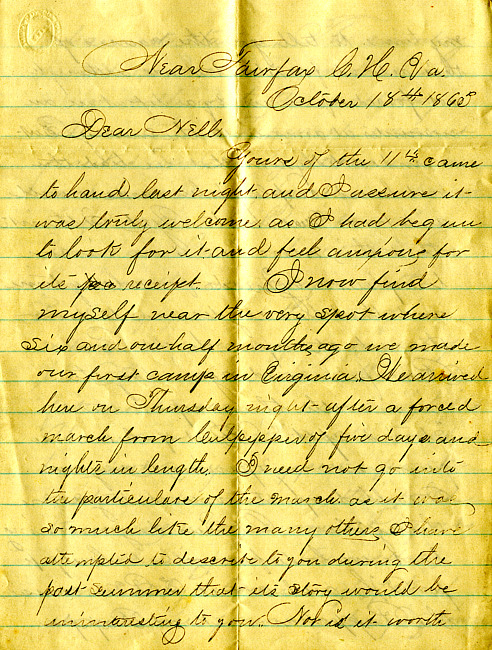 Near Fairfax C. H. Va.
October 18th 1863
Dear Nell,
Yours of the 11th came
to hand last night and I assure it
was truly welcome as I had begun
to look for it and feel anxious for
its receipt. I now find
myself near the very spot where
six and one half months ago we made
our first camp in Virginia. We arrived
here on Thursday night after a forced
march from Culpepper of five days and
nights in length. I need not go into
the particulars of the march as it was
so much like the many others I have
attempted to describe to you during the
past summer that its story would be
uninteresting to you. Nor is it worth